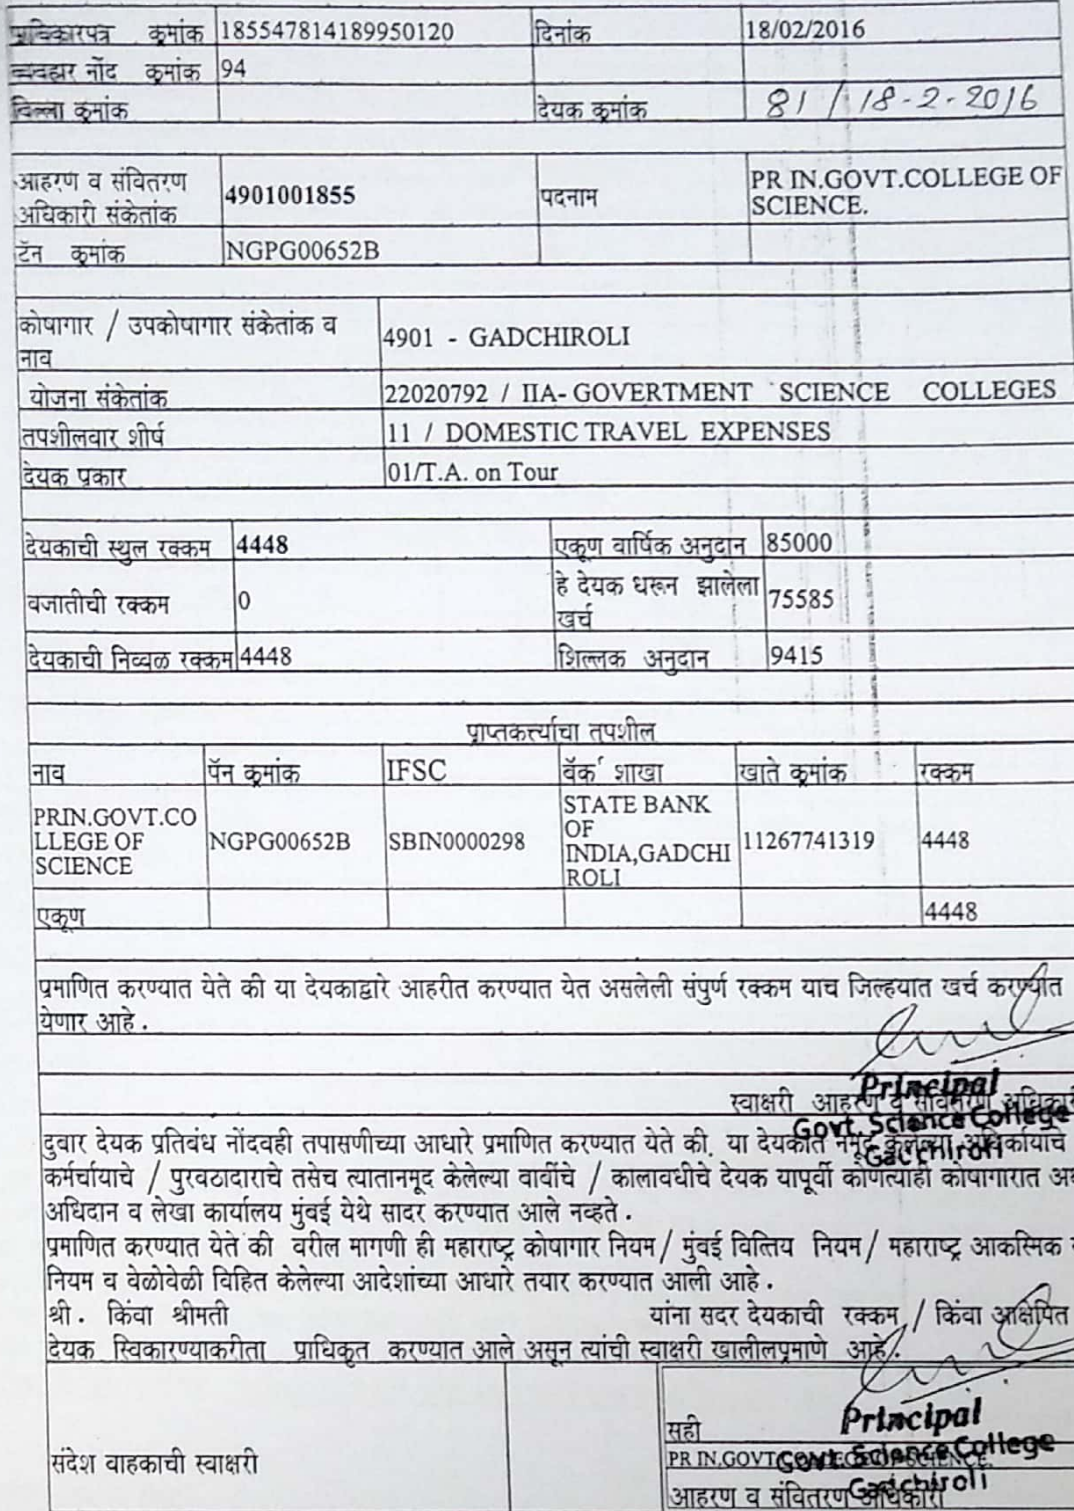 प्राधिकारपत्र क्रमांक 185547814189950120 दिनांक 18/02/2016
व्यवहार नोंद क्रमांक 94
बिल्ला क्रमांक देयक क्रमांक 81 / 18-2-2016
आहरण व संवितरण
अधिकारी संकेतांक 4901001855 पदनाम PR IN.GOVT.COLLEGE OF
SCIENCE.
टॅन क्रमांक NGPG00652B
कोषागार / उपकोषागार संकेतांक व
नाव 4901 - GADCHIROLI
योजना संकेतांक 22020792 / IIA-GOVERTMENT SCIENCE COLLEGES
तपशीलवार शीर्ष 11 / DOMESTIC TRAVEL EXPENSES
देयक प्रकार 01/T.A. on Tour
देयकाची स्थुल रक्कम 4448 एकूण वार्षिक अनुदान 85000
वजातीची रक्कम 0 हे देयक धरून झालेला
खर्च 75585
देयकाची निव्वळ रक्कम 4448 शिल्लक अनुदान 9415
प्राप्तकर्त्याचा तपशील
नाव पॅन क्रमांक IFSC बॅक शाखा खाते क्रमांक रक्कम
PRIN.GOVT.CO
LLEGE OF
SCIENCE NGPG00652B SBIN0000298 STATE BANK
OF
INDIA,GADCHI
ROLI 11267741319 4448
एकूण 4448
प्रमाणित करण्यात येते की या देयकाद्वारे आहरीत करण्यात येत असलेली संपुर्ण रक्कम याच जिल्हयात खर्च करण्यात
येणार आहे.
स्वाक्षरी आहरण व संवितरण अधिकारी
Principal
Govt. Science College
Gadchiroli
दुवार देयक प्रतिबंध नोंदवही तपासणीच्या आधारे प्रमाणित करण्यात येते की. या देयकात नमूद केलेल्या अधिकार्याचे
कर्मचार्याचे / पुरवठादाराचे तसेच त्यातानमूद केलेल्या वावींचे / कालावधीचे देयक यापूर्वी कोणत्याही कोषागारात
अधिदान व लेखा कार्यालय मुंबई येथे सादर करण्यात आले नव्हते.
प्रमाणित करण्यात येते की वरील मागणी ही महाराष्ट्र कोषागार नियम / मुंबई वित्तिय नियम / महाराष्ट्र आकस्मिक
नियम व वेळोवेळी विहित केलेल्या आदेशांच्या आधारे तयार करण्यात आली आहे.
श्री. किंवा श्रीमती यांना सदर देयकाची रक्कम / किंवा आक्षेपित
देयक स्विकारण्याकरीता प्राधिकृत करण्यात आले असून त्यांची स्वाक्षरी खालीलप्रमाणे आहे.
Principal
Govt. Science College
Gadchiroli
सही
संदेश वाहकाची स्वाक्षरी PR IN.GOVT SCIENCE.
आहरण व संवितरण अधिकारी